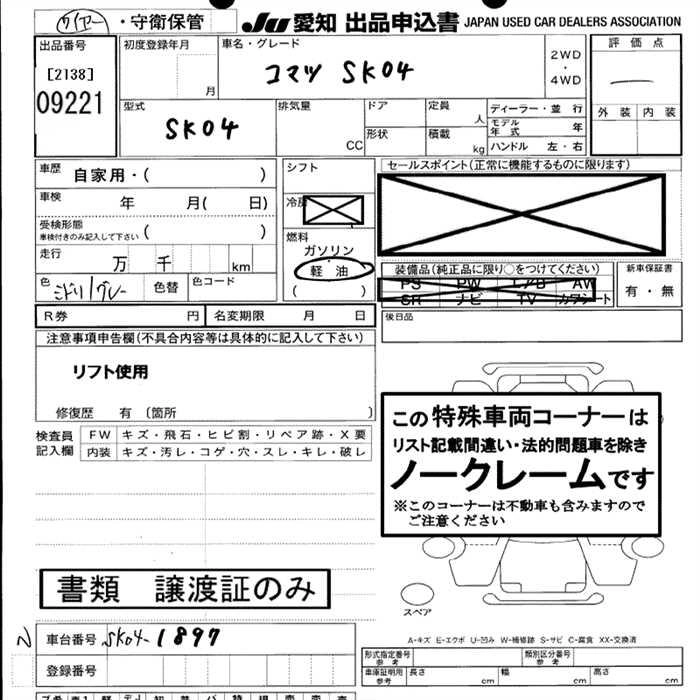 ・守衛保管 Ju 愛知 出品申込書 JAPAN USED CAR DEALERS ASSOCIATION
出品番号 初度登録年月 車名・グレード 評価点
[2138] 月 コマツ SK04 2WD
・
4WD
09221 外装 内装
型式 排気量 ドア 定員 ディーラー・並行
SK04 CC 形状 人 モデル年式 年
積載 kg ハンドル 左・右
車歴 自家用・( ) シフト セールスポイント(正常に機能するものに限ります)
車検 年 月( 日) 冷房
受検形態
車検付きのみ記入して下さい ( ) 燃料
ガソリン
走行 万 千 km 軽油 装備品(純正品に限り○をつけてください) 新車保証書
色 ミドリ/グレー 色替 色コード ( ) PS PW エアB AW 有・無
SR ナビ TV カワシート
R券 円 名変期限 月 日 後日品
注意事項申告欄(不具合内容等は具体的に記入して下さい)
リフト使用
修復歴 有 (箇所 )
検査員記入欄 FW キズ・飛石・ヒビ割・リペア跡・X要
内装 キズ・汚レ・コゲ・穴・スレ・キレ・破レ
この特殊車両コーナーは
リスト記載間違い・法的問題車を除き
ノークレームです
※このコーナーは不動車も含みますので
ご注意ください
書類 譲渡証のみ
スペア
車台番号 SK04-1897
A-キズ E-エクボ U-凹み W-補修跡 S-サビ C-腐食 XX-交換済
登録番号 型式指定番号 参考 類別区分番号 参考
車庫証明用 参考 長さ cm 幅 cm 高さ cm